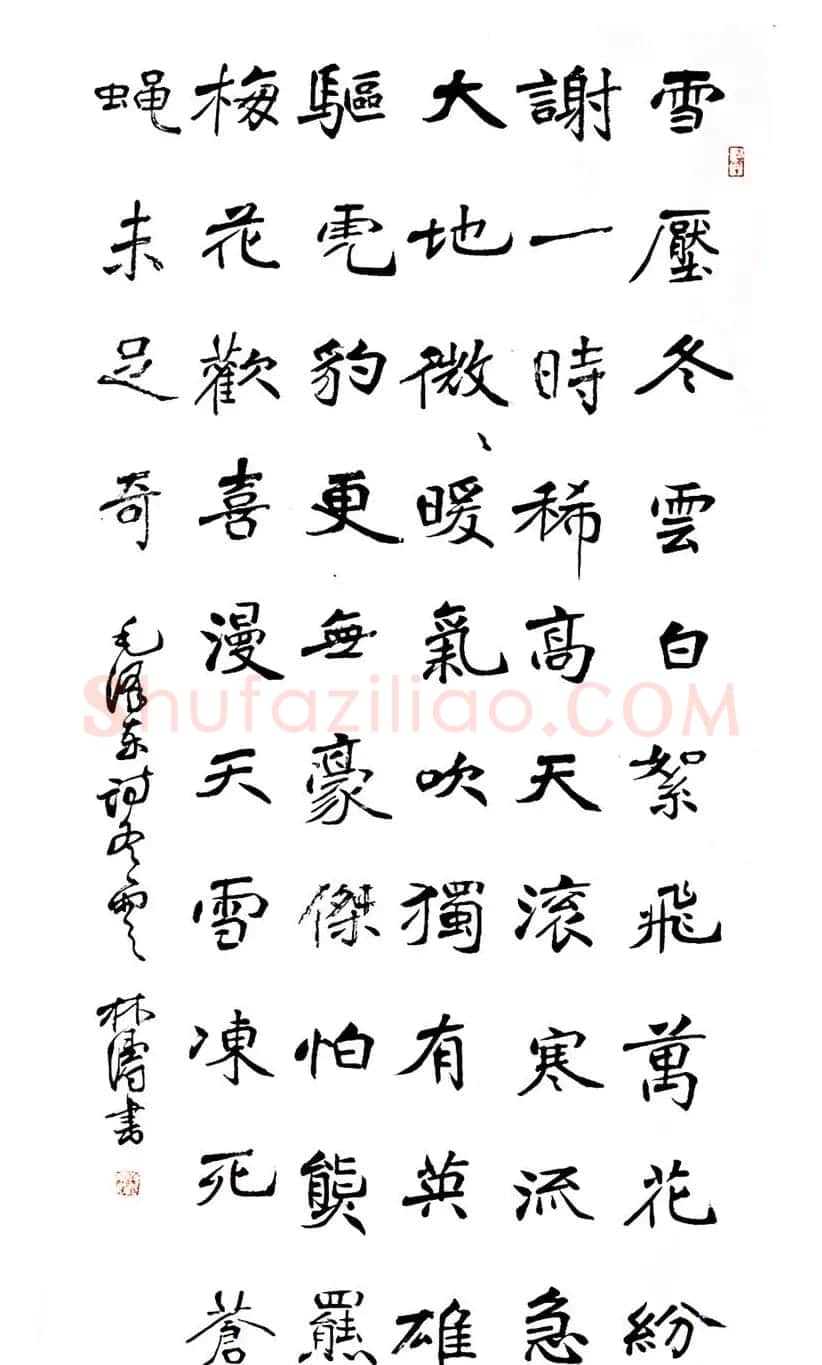 雪壓冬雲白絮飛萬花紛
謝一時稀高天滾寒流急
大地微〻暖氣吹獨有英雄
驅虎豹更無豪傑怕熊羆
梅花歡喜漫天雪凍死蒼
蝇未足奇 毛泽东诗冬雲 林濤書
Shufaziliao.COM